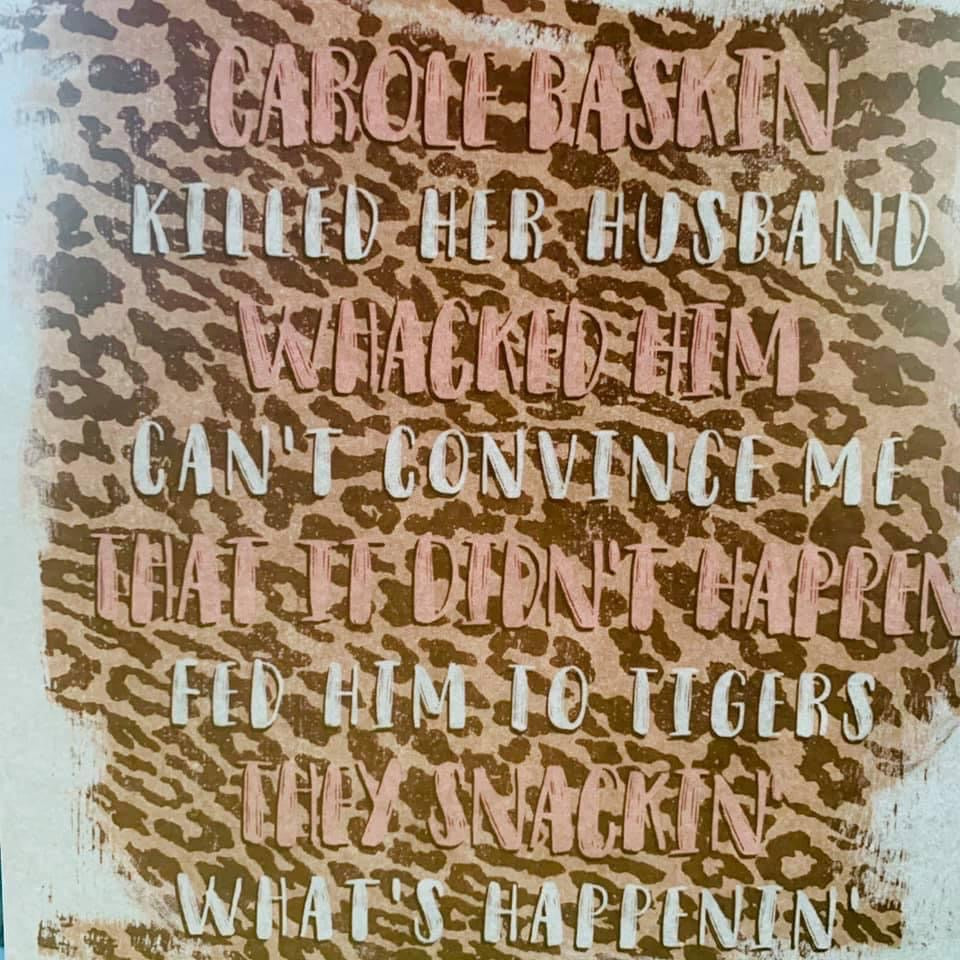 CAROLE BASKIN
KILLED HER HUSBAND
WHACKED HIM
CAN'T CONVINCE ME
THAT IT DIDN'T HAPPEN
FED HIM TO TIGERS
THEY SNACKIN'
WHAT'S HAPPENIN'